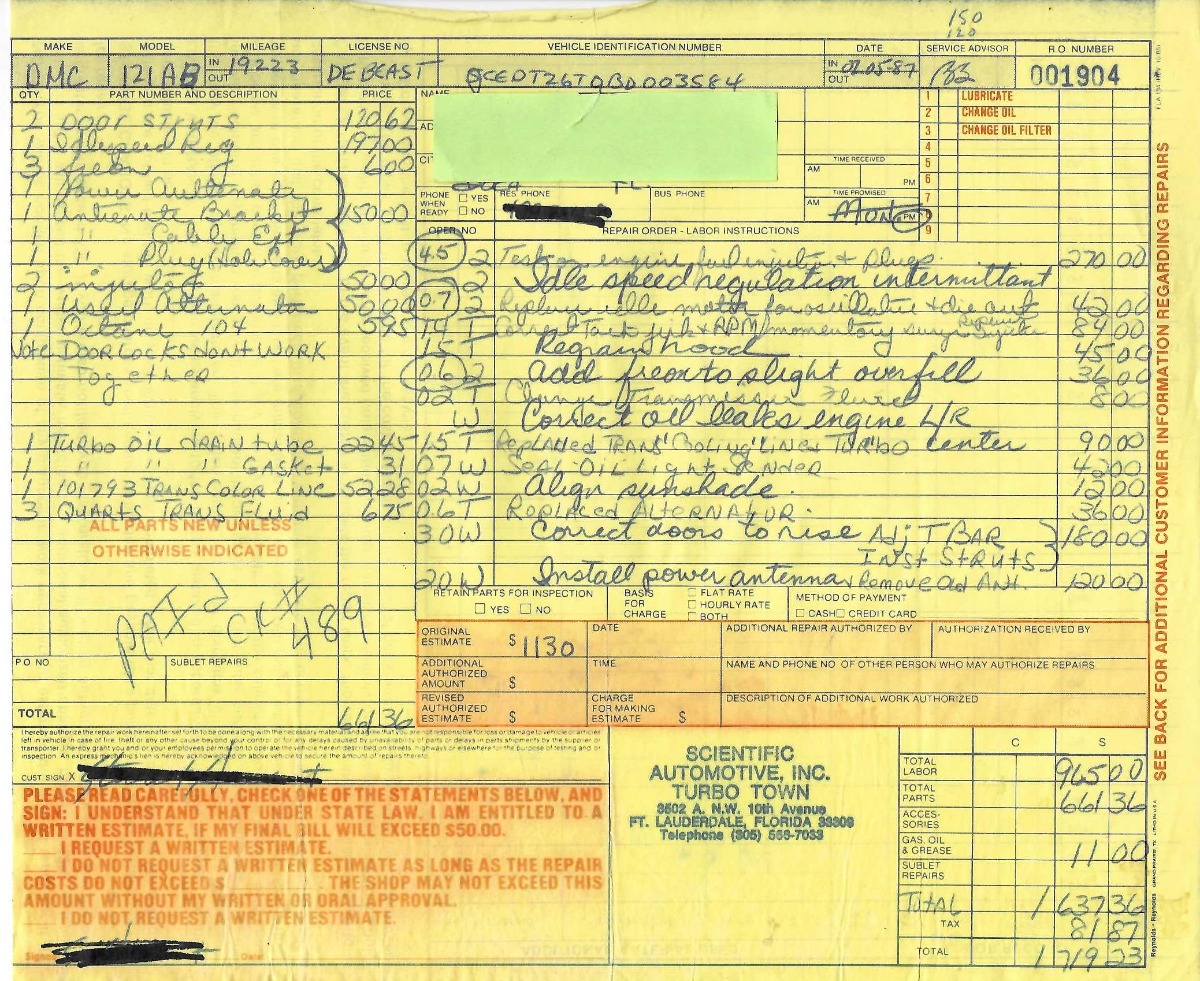 150
120
MAKE MODEL MILEAGE LICENSE NO VEHICLE IDENTIFICATION NUMBER DATE SERVICE ADVISOR R.O. NUMBER
DMC 121AB IN 19223 OUT DE BEAST SCEDT26T0BD003584 IN OUT 001904
QTY. PART NUMBER AND DESCRIPTION PRICE
2 DOOR STRUTS 120 62
1 Idlespeed Reg 197 00
3 freon 6 00
1 Power
1 Bracket 150 00
1 " Cable Ext
1 " Plug (Hole Cover)
2 50 00
1 Used 50 00
1 Octane 104 5 95
Note DOOR LOCKS DONT WORK
Together
1 TURBO OIL DRAIN tube 22 45
1 " " " GASKET 31
1 101793 TRANS COLOR LINE 52 28
3 QUARTS TRANS FLUID 6 75
ALL PARTS NEW UNLESS
OTHERWISE INDICATED
PAID CK# 489
P.O NO SUBLET REPAIRS
TOTAL 661 36
NAME
AD
CIT
FL.
PHONE WHEN READY YES NO RES PHONE BUS PHONE
TIME RECEIVED AM PM
TIME PROMISED AM Mon PM
1 LUBRICATE
2 CHANGE OIL
3 CHANGE OIL FILTER
4
5
6
7
8
9
OPER.NO REPAIR ORDER - LABOR INSTRUCTIONS
4.5 2 engine, fuel & plugs. 270 00
Idle speed regulation intermittant
0.7 2 idle motor for & die out 42 00
1 4 T Correct & RPM/momentary 84 00
1 5 T hood 45 00
0.6 2 Add freon to slight overfill 36 00
0 2 T Change Transmission 8 00
W Correct oil leaks engine L/R
1 5 T Replaced TRANS "Boling" Line & TURBO center 90 00
0 7 W Seal OIL Light Sender 42 00
0 2 W Align sunshade. 12 00
0.6 T Replaced ALTERNATOR. 36 00
3 0 W Correct doors to rise Adj T BAR 180.00
INST STRUTS
2 0 W Install power antenna & Remove old Ant. 120 00
RETAIN PARTS FOR INSPECTION YES NO
BASIS FOR CHARGE FLAT RATE HOURLY RATE BOTH
METHOD OF PAYMENT CASH CREDIT CARD
ORIGINAL ESTIMATE $ 1130 DATE ADDITIONAL REPAIR AUTHORIZED BY AUTHORIZATION RECEIVED BY
ADDITIONAL AUTHORIZED AMOUNT $ TIME NAME AND PHONE NO. OF OTHER PERSON WHO MAY AUTHORIZE REPAIRS
REVISED AUTHORIZED ESTIMATE $ CHARGE FOR MAKING ESTIMATE $ DESCRIPTION OF ADDITIONAL WORK AUTHORIZED
SEE BACK FOR ADDITIONAL CUSTOMER INFORMATION REGARDING REPAIRS
I hereby authorize the repair work hereinafter set forth to be done along with the necessary material and agree that you are not responsible for loss or damage to vehicle or articles
left in vehicle in case of fire, theft or any other cause beyond your control or for any delays caused by unavailability of parts or delays in parts shipments by the supplier or
transporter. I hereby grant you and/or your employees permission to operate the vehicle herein described on streets, highways or elsewhere for the purpose of testing and/or
inspection. An express mechanic's lien is hereby acknowledged on above vehicle to secure the amount of repairs thereto.
CUST SIGN. X
PLEASE READ CAREFULLY, CHECK ONE OF THE STATEMENTS BELOW, AND
SIGN: I UNDERSTAND THAT, UNDER STATE LAW, I AM ENTITLED TO A
WRITTEN ESTIMATE, IF MY FINAL BILL WILL EXCEED $50.00.
I REQUEST A WRITTEN ESTIMATE.
I DO NOT REQUEST A WRITTEN ESTIMATE AS LONG AS THE REPAIR
COSTS DO NOT EXCEED $ . THE SHOP MAY NOT EXCEED THIS
AMOUNT WITHOUT MY WRITTEN OR ORAL APPROVAL.
I DO NOT REQUEST A WRITTEN ESTIMATE.
SCIENTIFIC
AUTOMOTIVE, INC.
TURBO TOWN
3502 A. N.W. 10th Avenue
FT. LAUDERDALE, FLORIDA 33309
Telephone (305) 563-7033
C S
TOTAL LABOR 965 00
TOTAL PARTS 661 36
ACCESSORIES
GAS, OIL & GREASE 11 00
SUBLET REPAIRS
TOTAL 1 637 36
TAX 81 87
TOTAL 1 719 23